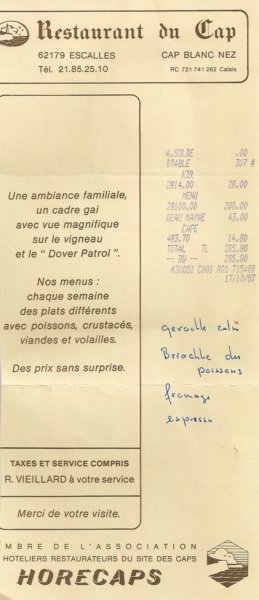 Restaurant du Cap
62179 ESCALLES
CAP BLANC NEZ
Tél. 21.85.25.10
RC 721 741 262 Calais
A.SOLDE .00
DTABLE 307 #
KIR
2@14.00 28.00
MENU
2@100.00 200.00
BEAU MAYNE 43.00
CAFE
14.80
TOTAL 7L 285.80
-- DU -- 285.80
17/10/87
Une ambiance familiale,
un cadre gai
avec vue magnifique
sur le vigneau
et le " Dover Patrol ".
Nos menus :
chaque semaine
des plats différents
avec poissons, crustacés,
viandes et volailles.
Des prix sans surprise.
poissons
fromage
expresso
TAXES ET SERVICE COMPRIS
R. VIEILLARD à votre service
Merci de votre visite.
MBRE DE L'ASSOCIATION
HOTELIERS RESTAURATEURS DU SITE DES CAPS
HORECAPS